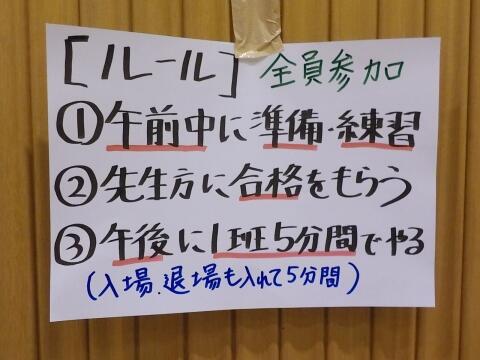 [ルール] 全員参加
①午前中に準備・練習
②先生方に合格をもらう
③午後に1班5分間でやる
(入場、退場も入れて5分間)